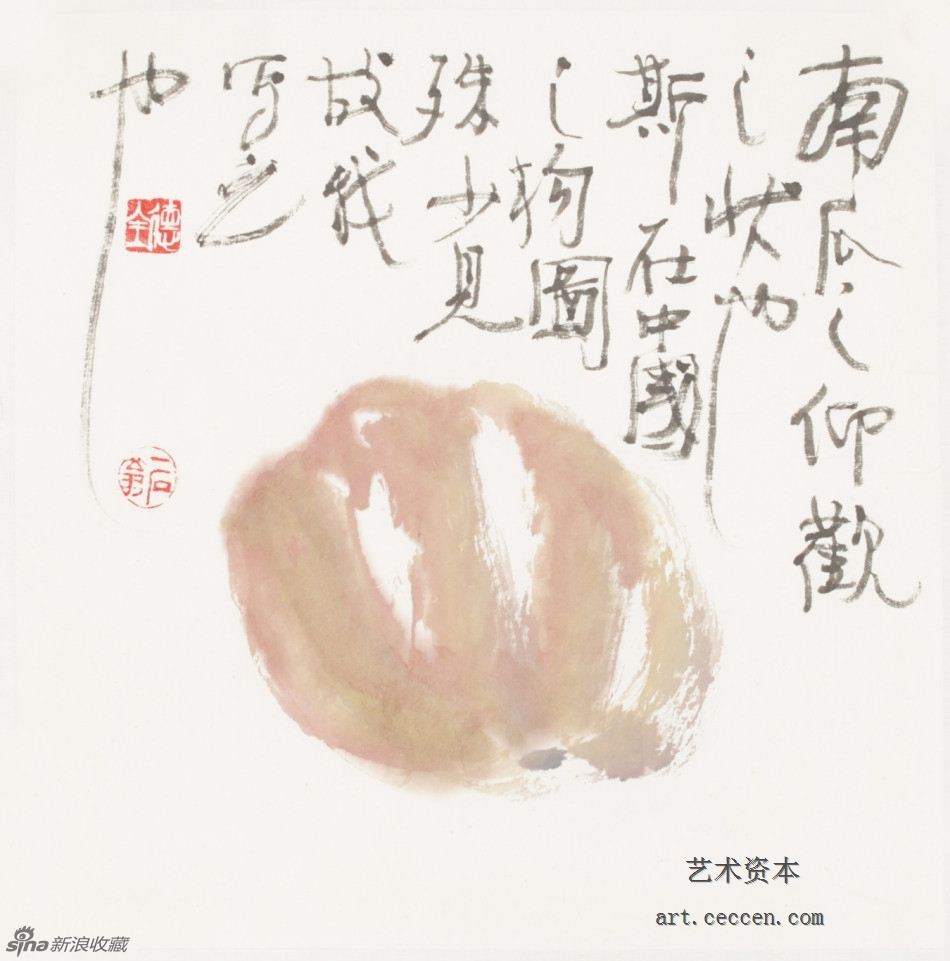 南瓜之仰觀
之状也
斯在中國
之构圖
殊少見
故我
写之
也
德全
石翁
艺术资本
art.ceccen.com
sina新浪收藏